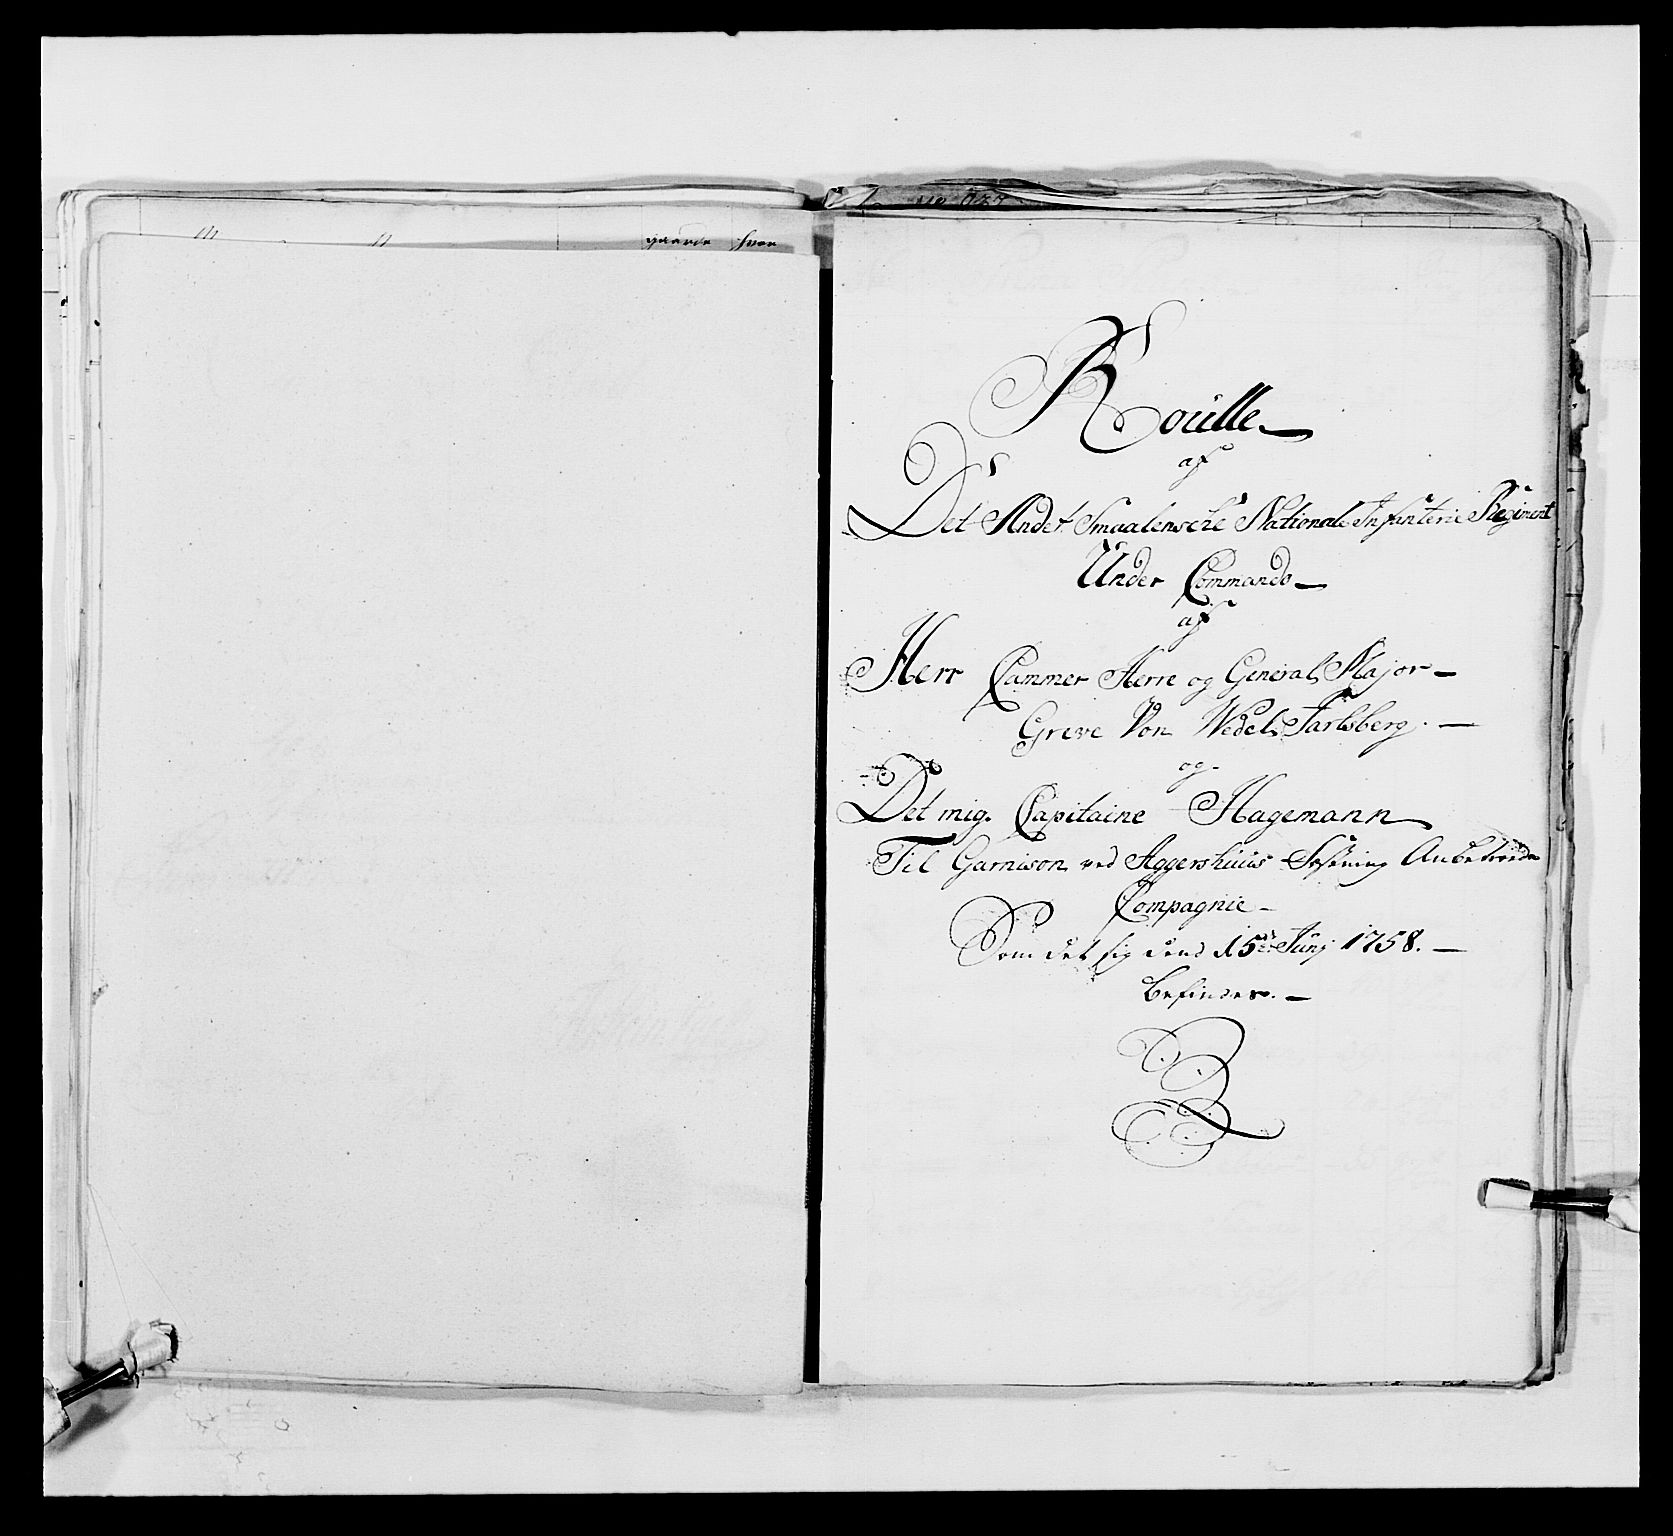 gaarde hvor
Roülle
af
Det Andet Smaalensche Nationale Infanterie Regiment
Under Commando
af
Herr Cammer Herre og General Major
Greve Von Wedel Jarlsberg.
og
Det mig Capitaine Hagemann
Til Garnison ved Aggershuus Festning Anbetroede
Compagnie
Som det sig dend 15de Junj 1758.
befinder.